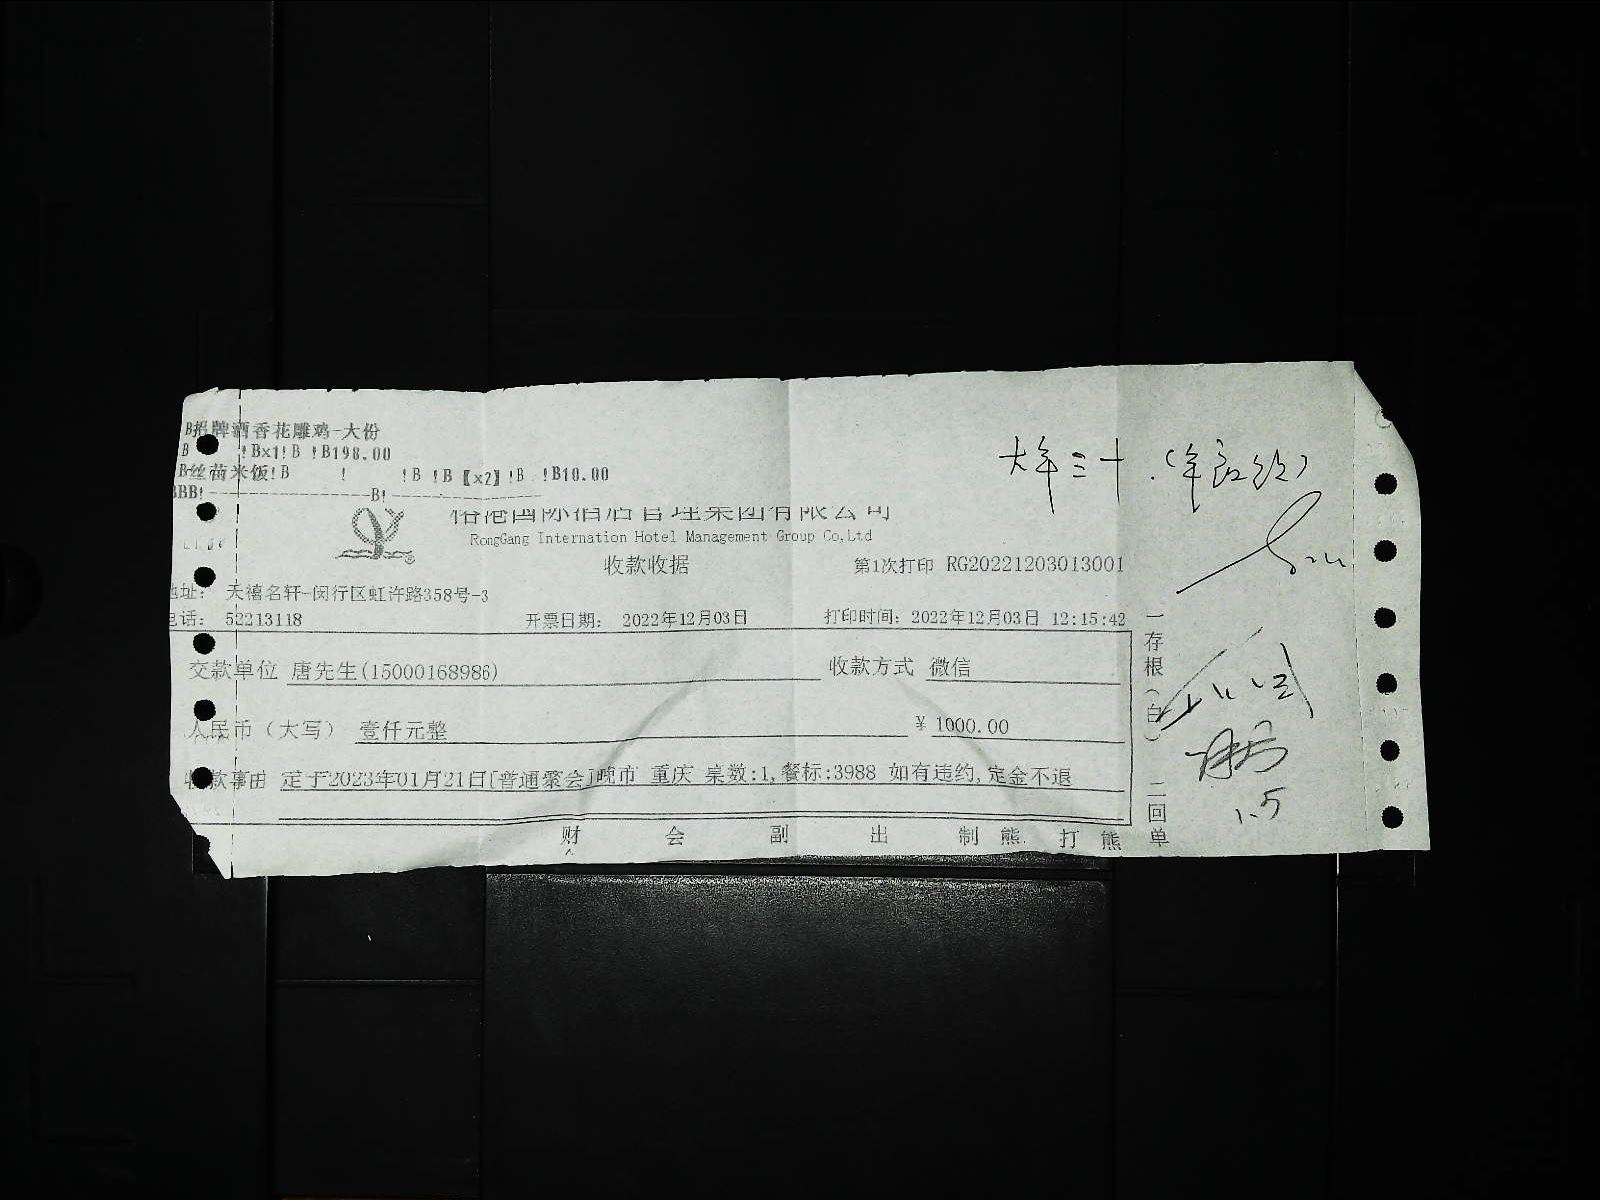 B招牌酒香花雕鸡-大份
B !Bx1!B !B198.00
BB丝苗米饭!B ! !B !B【x2】!B !B10.00
BBB!--------------------B!--------------------
国际酒店管理集团有限公司
RongGang Internation Hotel Management Group Co,Ltd
收款收据
第1次打印 RG20221203013001
地址: 大禧名轩-闵行区虹许路358号-3
电话: 52213118
开票日期: 2022年12月03日
打印时间: 2022年12月03日 12:15:42
交款单位 唐先生(15000168986)
收款方式 微信
人民币(大写) 壹仟元整
¥ 1000.00
收款事由 定于2023年01月21日[普通聚会]晚市 重庆 桌数:1,餐标:3988 如有违约,定金不退
财 会 副 出 制 熊 打 熊
一存根(白) 二回单
大年三十
1.5